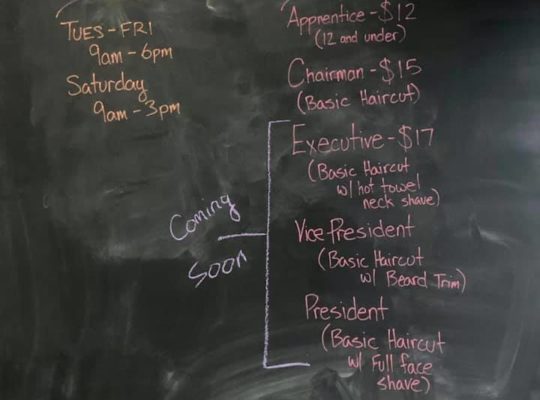 TUES - FRI
9am - 6pm
Saturday
9am - 3pm
Apprentice - $12
(12 and under)
Chairman - $15
(Basic Haircut)
Coming
Soon
Executive - $17
(Basic Haircut
w/ hot towel
neck shave)
Vice President
(Basic Haircut
w/ Beard Trim)
President
(Basic Haircut
w/ Full face
shave)